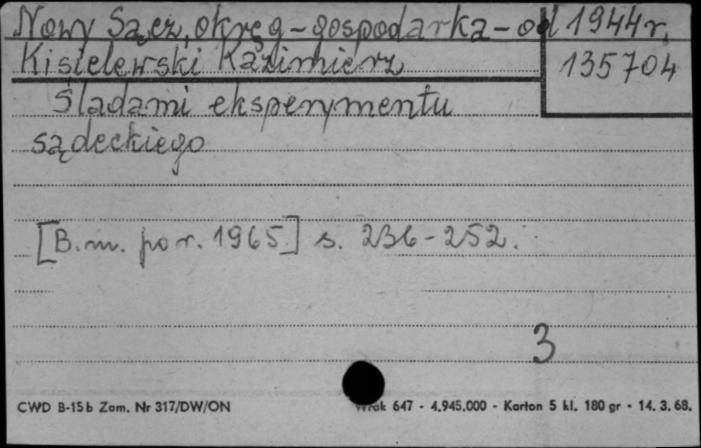 Nowy Sącz, okręg - gospodarka - od 1944 r.
Kisielewski Kazimierz
135704
Śladami eksperymentu
sądeckiego
[B.m. po r. 1965] s. 236-252.
3
CWD B-15b Zam. Nr 317/DW/ON
647 - 4.945.000 - Karton 5 kl. 180 gr - 14. 3. 68.